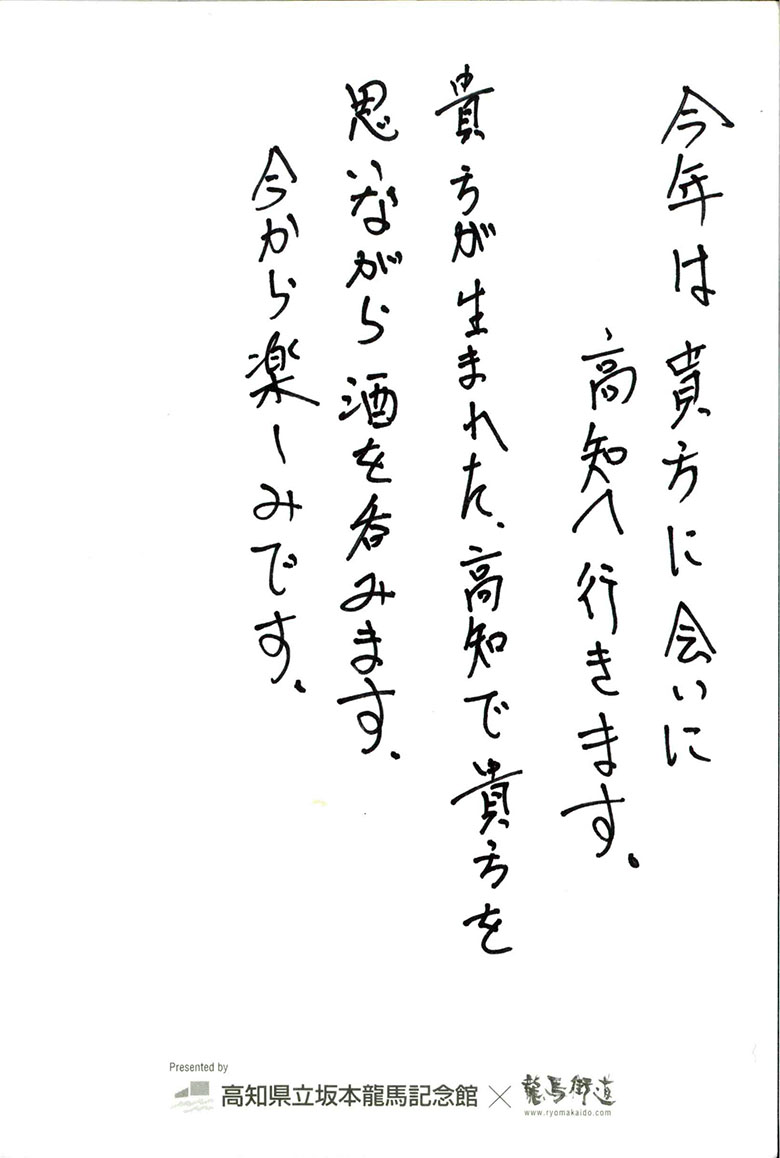 今年は貴方に会いに
高知へ行きます。
貴方が生まれた、高知で貴方を
思いながら酒を呑みます。
今から楽しみです。
Presented by
高知県立坂本龍馬記念館 × 龍馬街道
www.ryomakaido.com